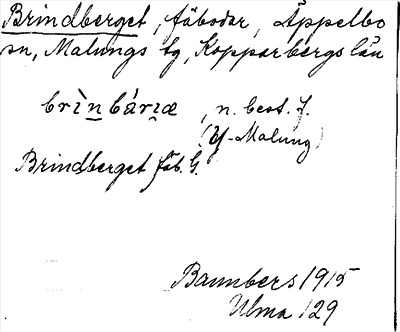 Brindberget, fäbodar, Äppelbo
sn, Malungs tg, Kopparbergs län
brìnbáriæ, n. best. f.
(Y-Malung)
Brindberget fäb. G.
Bannbers 1915
Ulma 129